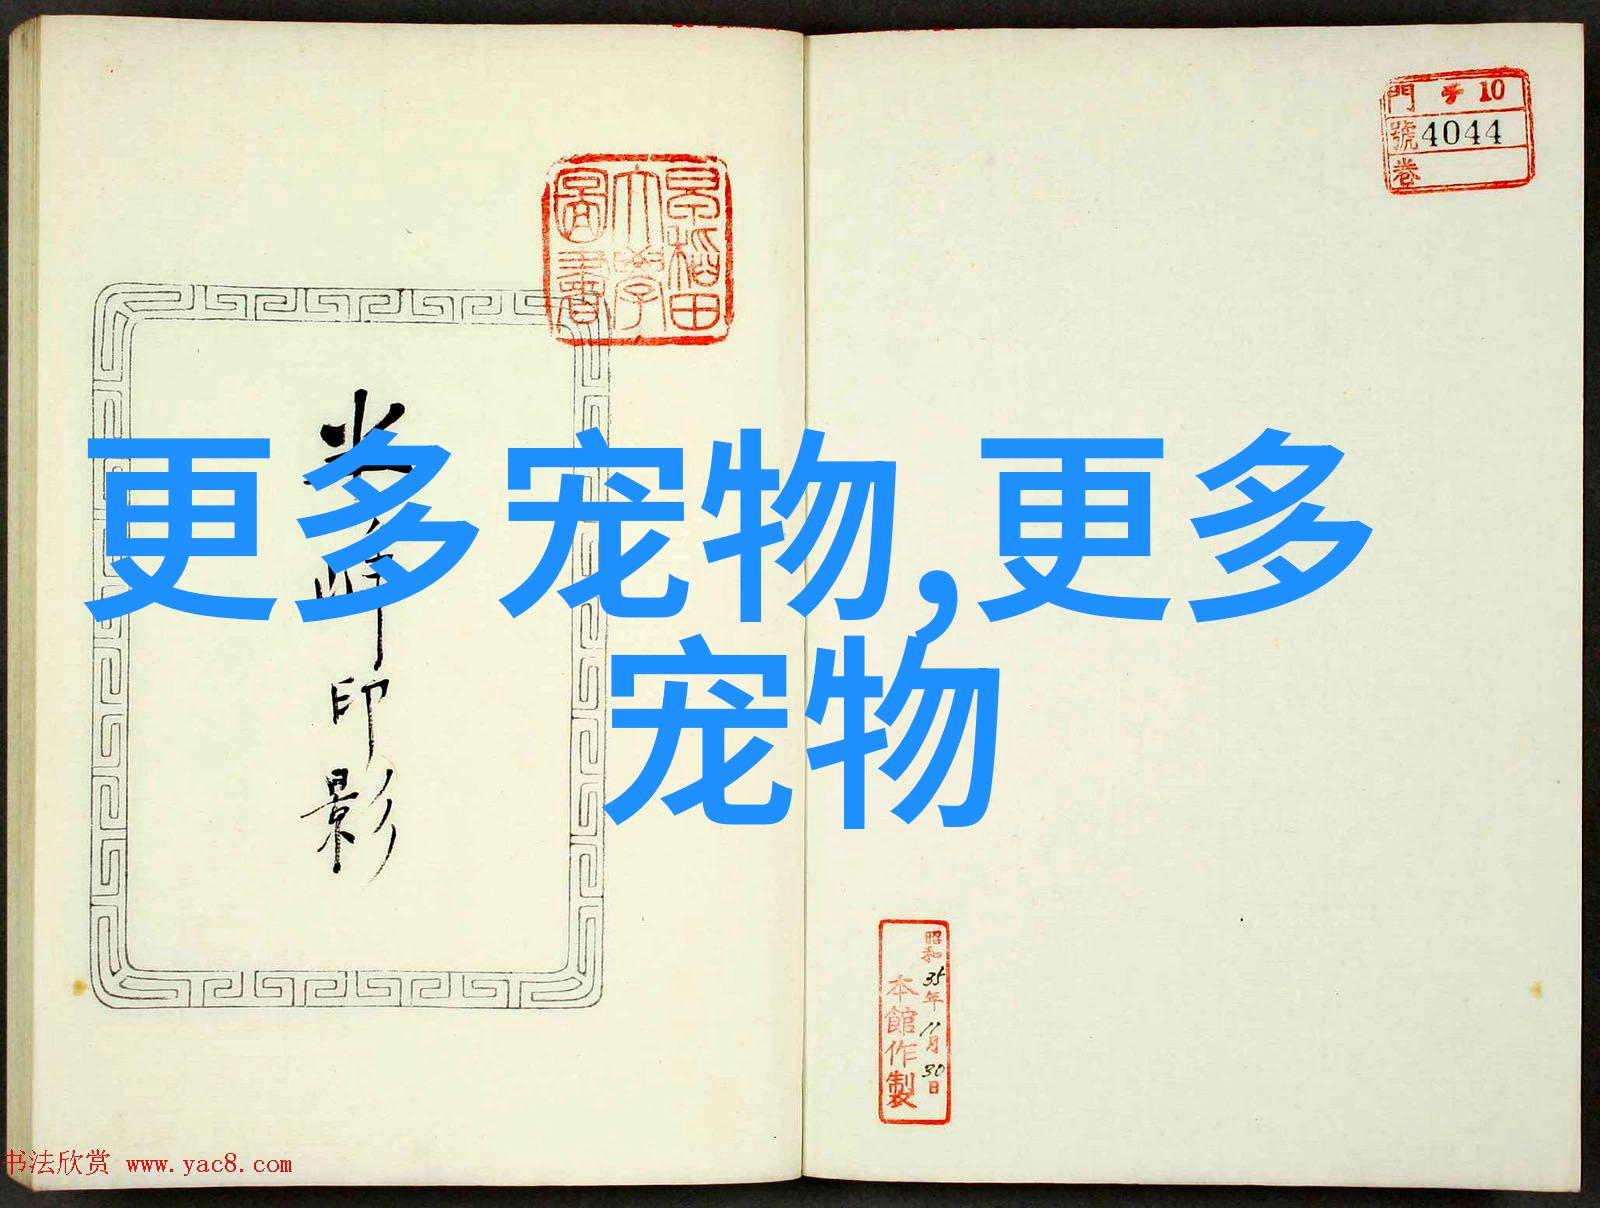 門 10
號 4044
卷
早稲田
大學
圖書
更多宠物,更多
宠物
印影
昭和35年11月30日
本館作製
书法欣赏 www.yac8.com